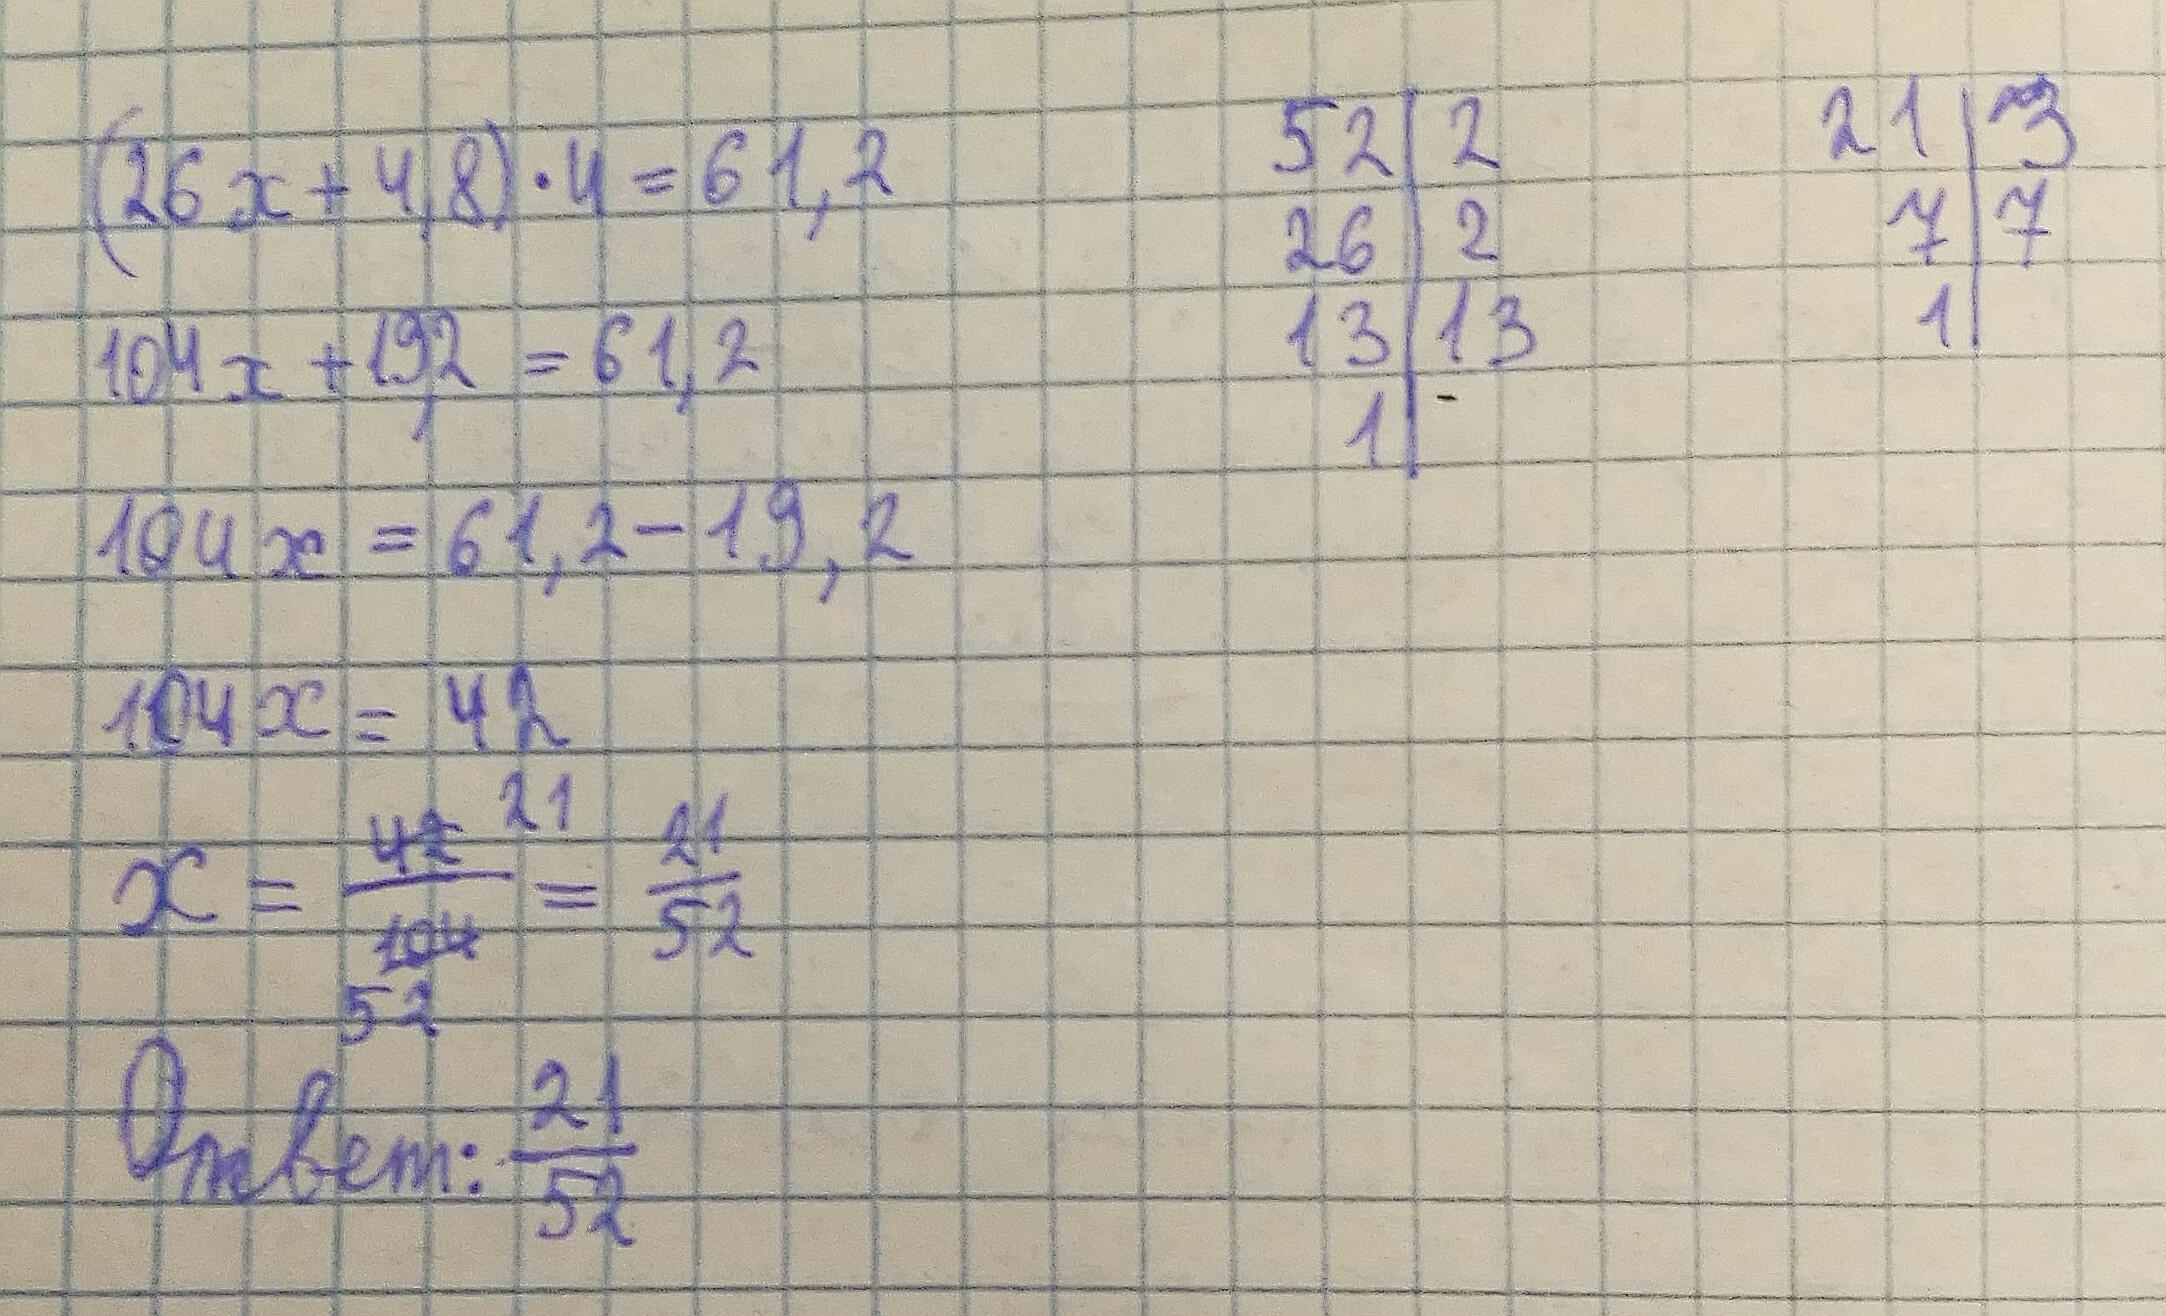 (26x + 4,8) · 4 = 61,2
104x + 19,2 = 61,2
104x = 61,2 - 19,2
104x = 42
x = 42/104 21 52 = 21/52
Ответ: 21/52
52 | 2
26 | 2
13 | 13
1 | -
21 | 3
7 | 7
1 |